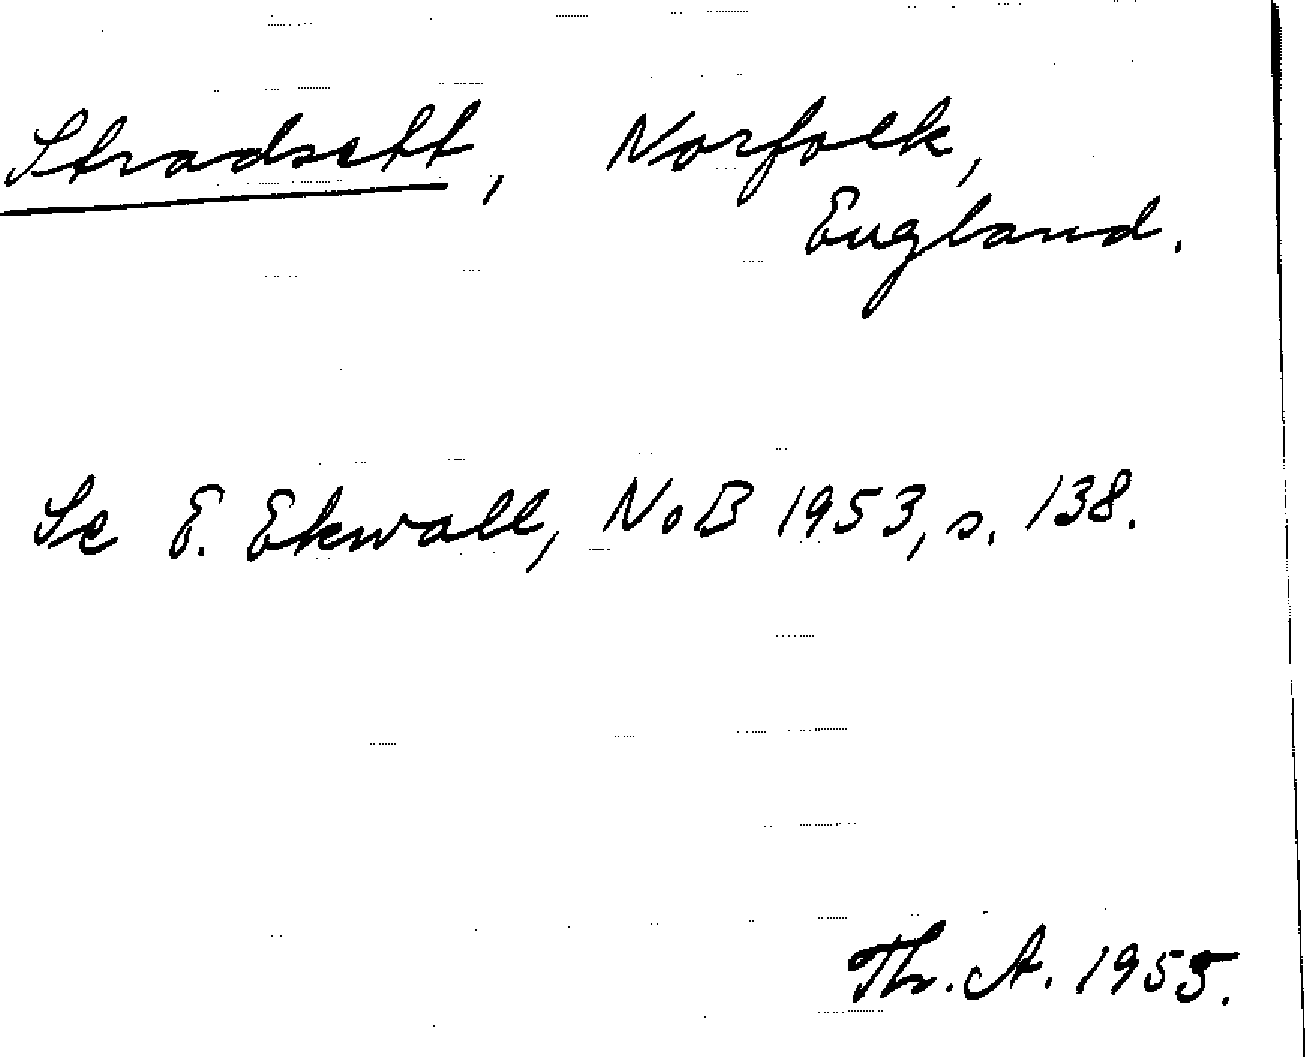 Stradsett, Norfolk,
England.
Se E. Ekwall, NoB 1953, s. 138.
Th. A. 1955.